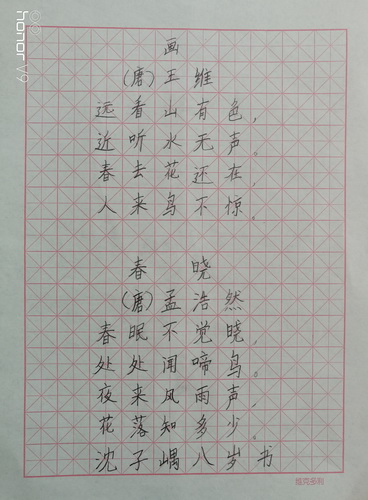 画
(唐)王维
远看山有色,
近听水无声。
春去花还在,
人来鸟不惊。
春晓
(唐)孟浩然
春眠不觉晓,
处处闻啼鸟。
夜来风雨声,
花落知多少。
沈子嵎八岁书
维克多利
honor V9